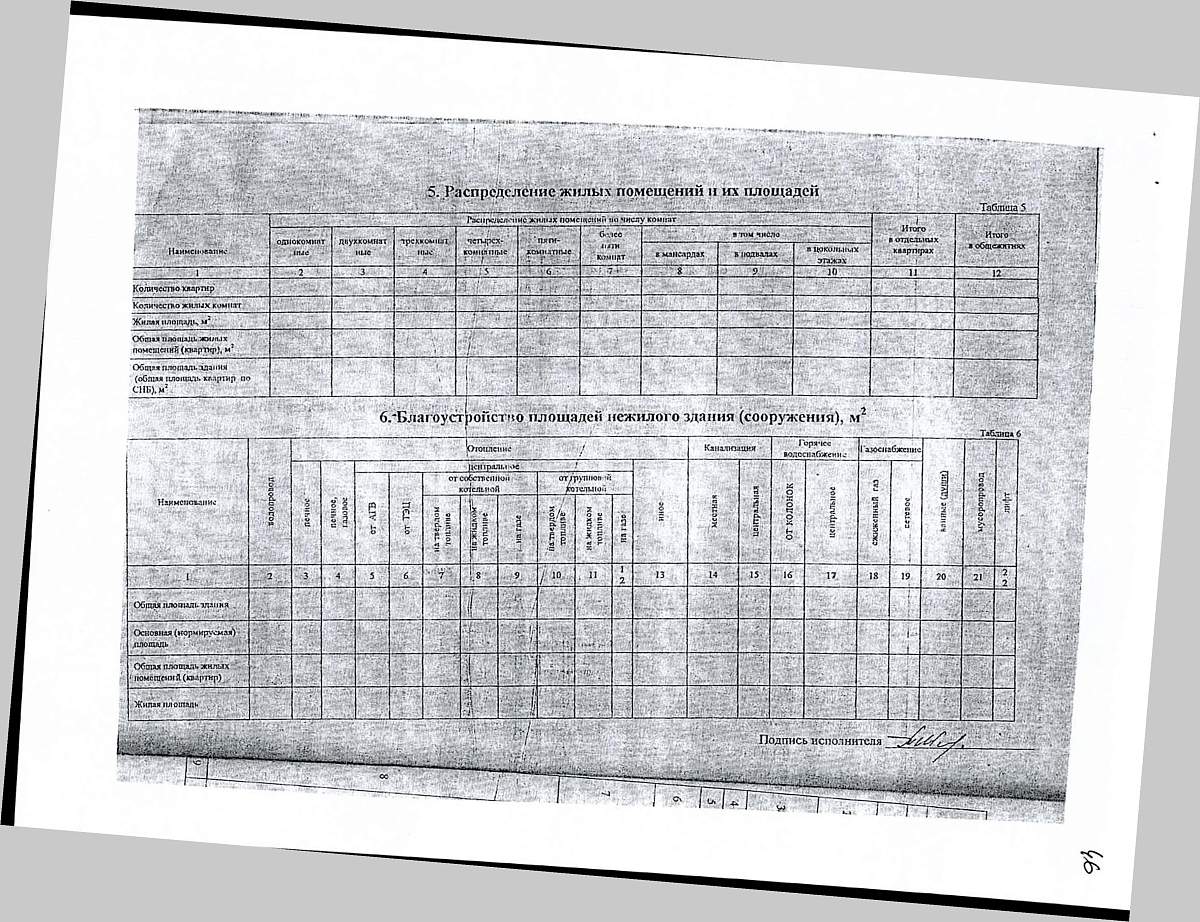 5. Распределение жилых помещений и их площадей
Таблица 5
Наименование
Распределение жилых помещений по числу комнат
Итого в отдельных квартирах
Итого в общежитиях
однокомнат ные
двухкомнат ные
трехкомнат ные
четырех- комнатные
пяти- комнатные
более пяти комнат
в том число
в мансардах
в подвалах
в цокольных этажах
1 2 3 4 5 6 7 8 9 10 11 12
Количество квартир
Количество жилых комнат
Жилая площадь, м²
Общая площадь жилых
помещений (квартир), м²
Общая площадь здания
(общая площадь квартир по
СНБ), м²
6. Благоустройство площадей нежилого здания (сооружения), м²
Таблица 6
Наименование
водопровод
Отопление
Канализация
Горячее водоснабжение
Газоснабжение
ванные (души)
мусоропровод
лифт
печное
печное, газовое
центральное
иное
от АГВ
от ТЭЦ
от собственной котельной
от групповой котельной
на твердом топливе
на жидком топливе
на газе
на твердом топливе
на жидком топливе
на газе
местная
центральная
от колонок
центральное
сжиженный газ
сетевое
1 2 3 4 5 6 7 8 9 10 11 12 13 14 15 16 17 18 19 20 21 22
Общая площадь здания
Основная (нормируемая)
площадь
Общая площадь жилых
помещений (квартир)
Жилая площадь
Подпись исполнителя
9 8 7 6 5 4 3 2
46